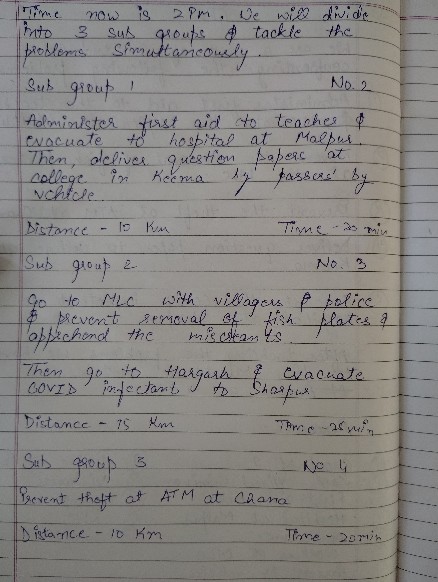 Time now is 2 Pm. We will divide
into 3 sub groups & tackle the
problems Simultaneously.
Sub group 1 No. 2
Administer first aid to teaches &
evacuate to hospital at Malpur.
Then, deliver question papers at
college in Keema by passers' by
vehicle.
Distance - 10 Km Time - 20 min
Sub group 2 No. 3
go to MLC with villagers & police
& prevent removal of fish plates &
apprehend the miscreants.
Then go to Hargarh & evacuate
COVID infectant to Sharpur
Distance - 15 Km Time - 25 min
Sub group 3 No 4
Prevent theft at ATM at Chana
Distance - 10 Km Time - 20 min